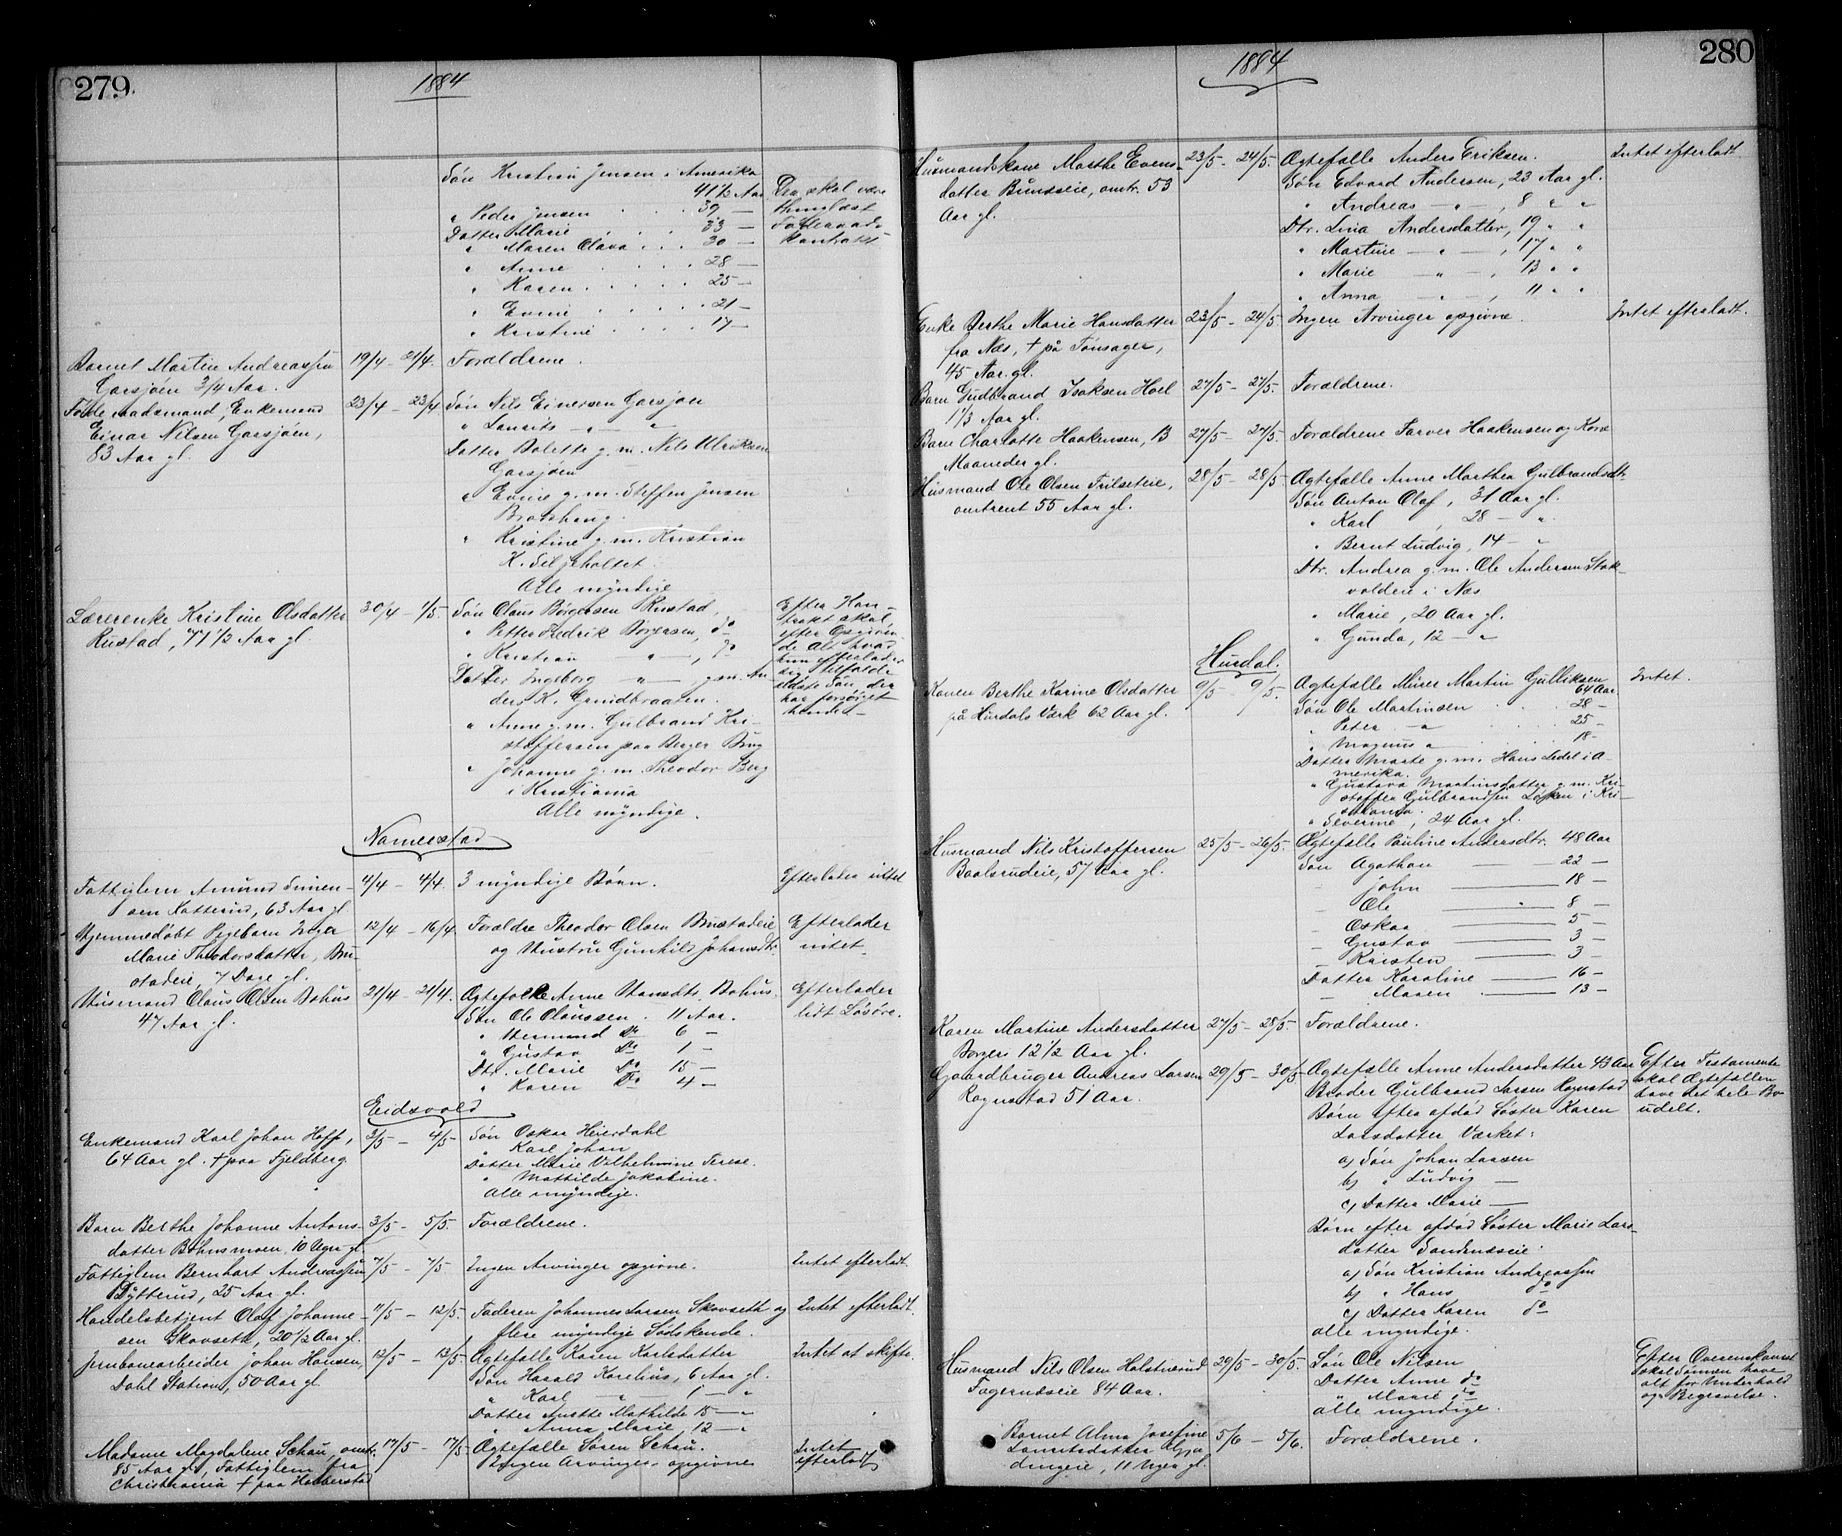 279.
1884
Søn Kristian Jensen i Amerika
41½ Aar
" Peder Jensen . . . 39 —
Datter Marie . . . 33 —
" Maren Olava . . . 30 —
" Anne . . . . 28 —
" Karen . . . . 25 —
" Evine . . . . 21 —
" Kristine . . . . 17 —
Der skal være
thinglæst
Føderaads-
kontrakt
Barnet Martin Andreassen 19/4 - 21/4. Forældrene.
Garsjøen 3/4 Aar.
Føderaadsmand, Enkemand 23/4 - 23/4 Søn Nils Einersen Garsjøen
Einar Nilsen Garsjøen, " Laurits — " — "
83 Aar gl. Datter Bolette g. m. Nils Ulriksen
Garsjøen
" Evine g. m. Steffen Jensen
" Kristine g. m. Kristian
K. Siljeholtet.
Alle myndige
Lærerenke Kristine Olsdatter 30/4 - 1/5. Søn Olaus Børgersen Rustad,
Rustad, 71½ Aar gl. " Petter Fredrik Børgersen, do
" Kristian — " —, do
Datter Ingeborg — " — g. m. An-
ders K. Grindbraaten.
" Anne g. m. Gulbrand Kri-
stoffersen paa Berger Brug
" Johanne g. m. Theodor Berg
i Kristiania
Alle myndige.
Efter Kon-
trakt skal,
efter Opgiven-
de Alt hvad
hun efterlader
sig tilfalde
ældste Søn, der
har forsørget
hende.
Nannestad
Fattiglem Amund Simen- 4/4 - 4/4. 3 myndige Børn. Efterlader intet
sen Katterud, 63 Aar gl
Hjemmedøbt Pigebarn Inger 12/4 - 16/4 Forældre Theodor Olsen Brustadeie Efterlader
Marie Theodorsdatter, Bru- og Hustru Gunhild Johansdtr. intet
stadeie, 7 Dage gl.
Husmand Olaus Olsen Bohus 21/4 - 21/4. Ægtefolke Anne Hansdtr. Bohus. Efterlader
47 Aar gl. Søn Ole Olaussen. 11 Aar. lidt Løsøre.
" Hermand Do 6 —
" Gustav Do 1 —
Dtr. Marie Do 15 —
" Karen Do 4 —
Eidsvold
Enkemand Karl Johan Hoff, 3/5 - 4/5 Søn Oskar Heierdahl
64 Aar gl. † paa Fjeldberg " Karl Johan
Datter Marie Vilhelmine Terese.
" Mathilde Jakobine.
Alle myndige.
Barn Berthe Johanne Antons- 3/5 - 5/5. Forældrene.
datter Bohnsmoen, 10 Uger gl.
Fattiglem Bernhart Andreassen 7/5 - 7/5. Ingen Arvinger opgivne. Intet efterladt.
Dytterud, 25 Aar gl.
Handelsbetjent Olaf Johanne- 11/5 - 12/5. Faderen Johannes Larsen Skovseth og Intet efterladt.
sen Skovseth, 20½ Aar gl. flere myndige Sødskende.
Jernbanearbeider Johan Hansen, 12/5 - 13/5. Ægtefælle Karen Karlsdatter Intet at skifte.
Dahl Station, 50 Aar gl. Søn Harald Kornelius, 6 Aar gl.
" Karl — " — 1 — "
Datter Anette Mathilde 15 — "
" Anna Marie 12 — "
Madame Magdalene Schau, omtr. 17/5 - 17/5 Ægtefælle Søren Schau. Intet
85 Aar gl, Fattiglem fra Ingen Arvinger opgivne efterladt
Christiania † paa Habberstad
280
1884
Husmandskone Marthe Evens- 23/5 - 24/5. Ægtefælle Anders Eriksen. Intet efterladt
datter Bunæseie, omtr. 53 Søn Edvard Andersen, 23 Aar gl.
Aar gl. " Andreas — " —, 8 " "
Dtr. Lina Andersdatter, 19 " "
" Martine — " —, 17 " "
" Marie — " —, 13 " "
" Anna — " —, 11 " "
Enke Berthe Marie Hansdatter 23/5 - 24/5. Ingen Arvinger opgivne. Intet efterladt.
fra Næs, † på Tønsager,
45 Aar gl.
Barn Gudbrand Isaksen Hoel 27/5 - 27/5. Forældrene.
1⅓ Aar gl.
Barn Charlotte Haakensen, 13 27/5 - 27/5. Forældrene Farver Haakensen og Kone
Maaneder gl.
Husmand Ole Olsen Trilseteie, 28/5 - 28/5 Ægtefælle Anne Marthea Gulbrandsdtr.
omtrent 55 Aar gl. Søn Anton Olaf, 31 Aar gl.
" Karl , 28 — "
" Bernt Ludvig, 14 — "
Dtr. Andrea g. m. Ole Andersen Stok-
volden i Næs
" Marie, 20 Aar gl.
" Gunda, 12 — "
Hurdal.
Konen Berthe Karine Olsdatter 9/5 - 9/5. Ægtefælle Murer Martin Gulliksen Intet.
på Hurdals Værk 62 Aar gl. 64 Aar
Søn Ole Martinsen . . 28 —
" Peter — " . . 25 —
" Magnus " . . 18 —
Datter Marte g. m. Hans Sedel i A-
merika.
" Gustava Martinsdatter g. m. Kri-
stoffer Gulbrandsen Løken i Kri-
stiania.
" Severine, 24 Aar gl.
Husmand Nils Kristoffersen 25/5 - 26/5. Ægtefælle Pauline Andersdtr. 48 Aar
Baalsrudeie, 57 Aar gl. Søn Agathon — 22 —
— John — 18 —
— Ole — 8 —
— Oskar — 5 —
— Gustav — 3 —
— Kristen — 3 —
Datter Karoline — 16 —
— Maren — 13 —
Karen Martine Andersdatter 27/5 - 28/5. Forældrene.
Borgen 12½ Aar gl.
Gaardbruger Andreas Larsen 29/5 - 30/5 Ægtefælle Anne Andersdatter 43 Aar Efter Testamente
Rognstad 51 Aar. Broder Gulbrand Larsen Rognstad skal Ægtefællen
Børn efter afdød Søster Karen have det hele Bo
Larsdatter Værket: udelt.
a) Søn Johan Larsen
b) " Ludvig —
c) Datter Marie —
Børn efter afdød Søster Marie Lars-
datter Sandnæseie:
a) Søn Kristian Andreassen
b) " Hans do
c) Datter Karen do
alle myndige.
Husmand Nils Olsen Holstuend 29/5 - 30/5. Søn Ole Nilsen Efter Overenskomst
Fagernæseie 84 Aar. Datter Anne do skal Sønnen have
" Marie do alt for Underhold
alle myndige. og Begravelse.
Barnet Alma Josefine 5/6 - 5/6. Forældrene.
Lauritsdatter Gja-
dingeie, 11 Uger gl.